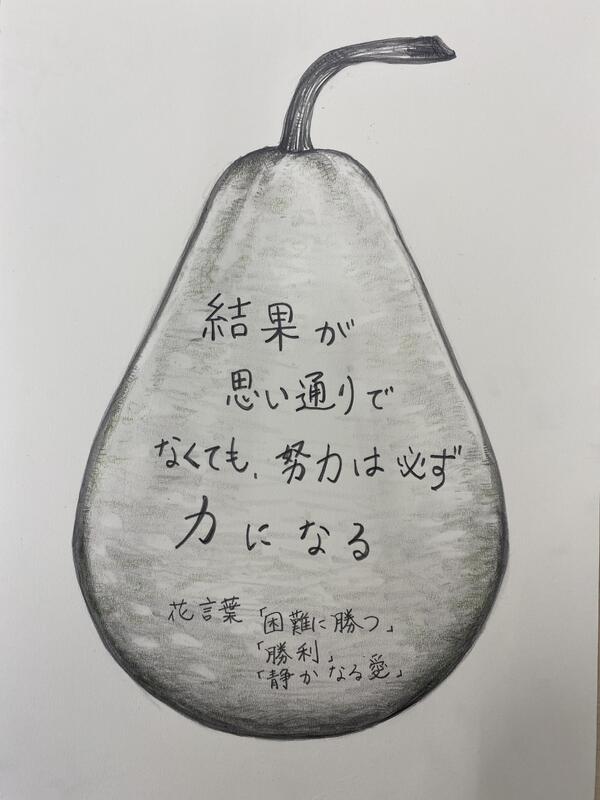 結果が
思い通りで
なくても、努力は必ず
力になる
花言葉「困難に勝つ」
「勝利」
「静かなる愛」